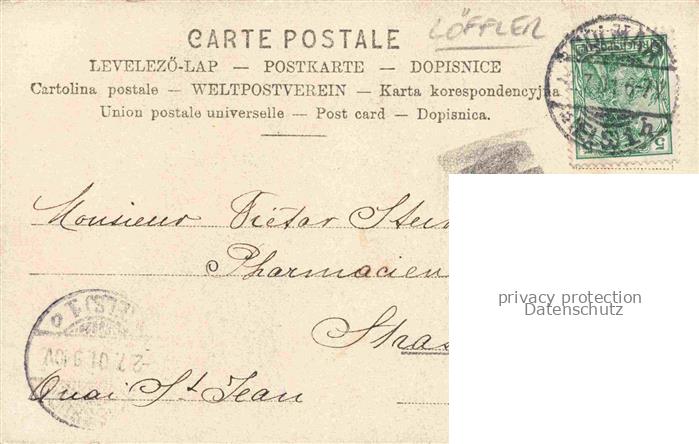 LÖFFLER
CARTE POSTALE
LEVELEZŐ-LAP — POSTKARTE — DOPISNICE
Cartolina postale — WELTPOSTVEREIN — Karta korespondencyjna
Union postale universelle — Post card — Dopisnica.
5
Monsieur Victor
Pharmacien
privacy protection
Datenschutz
Quai St Jean
(ELS)
2.7.01.